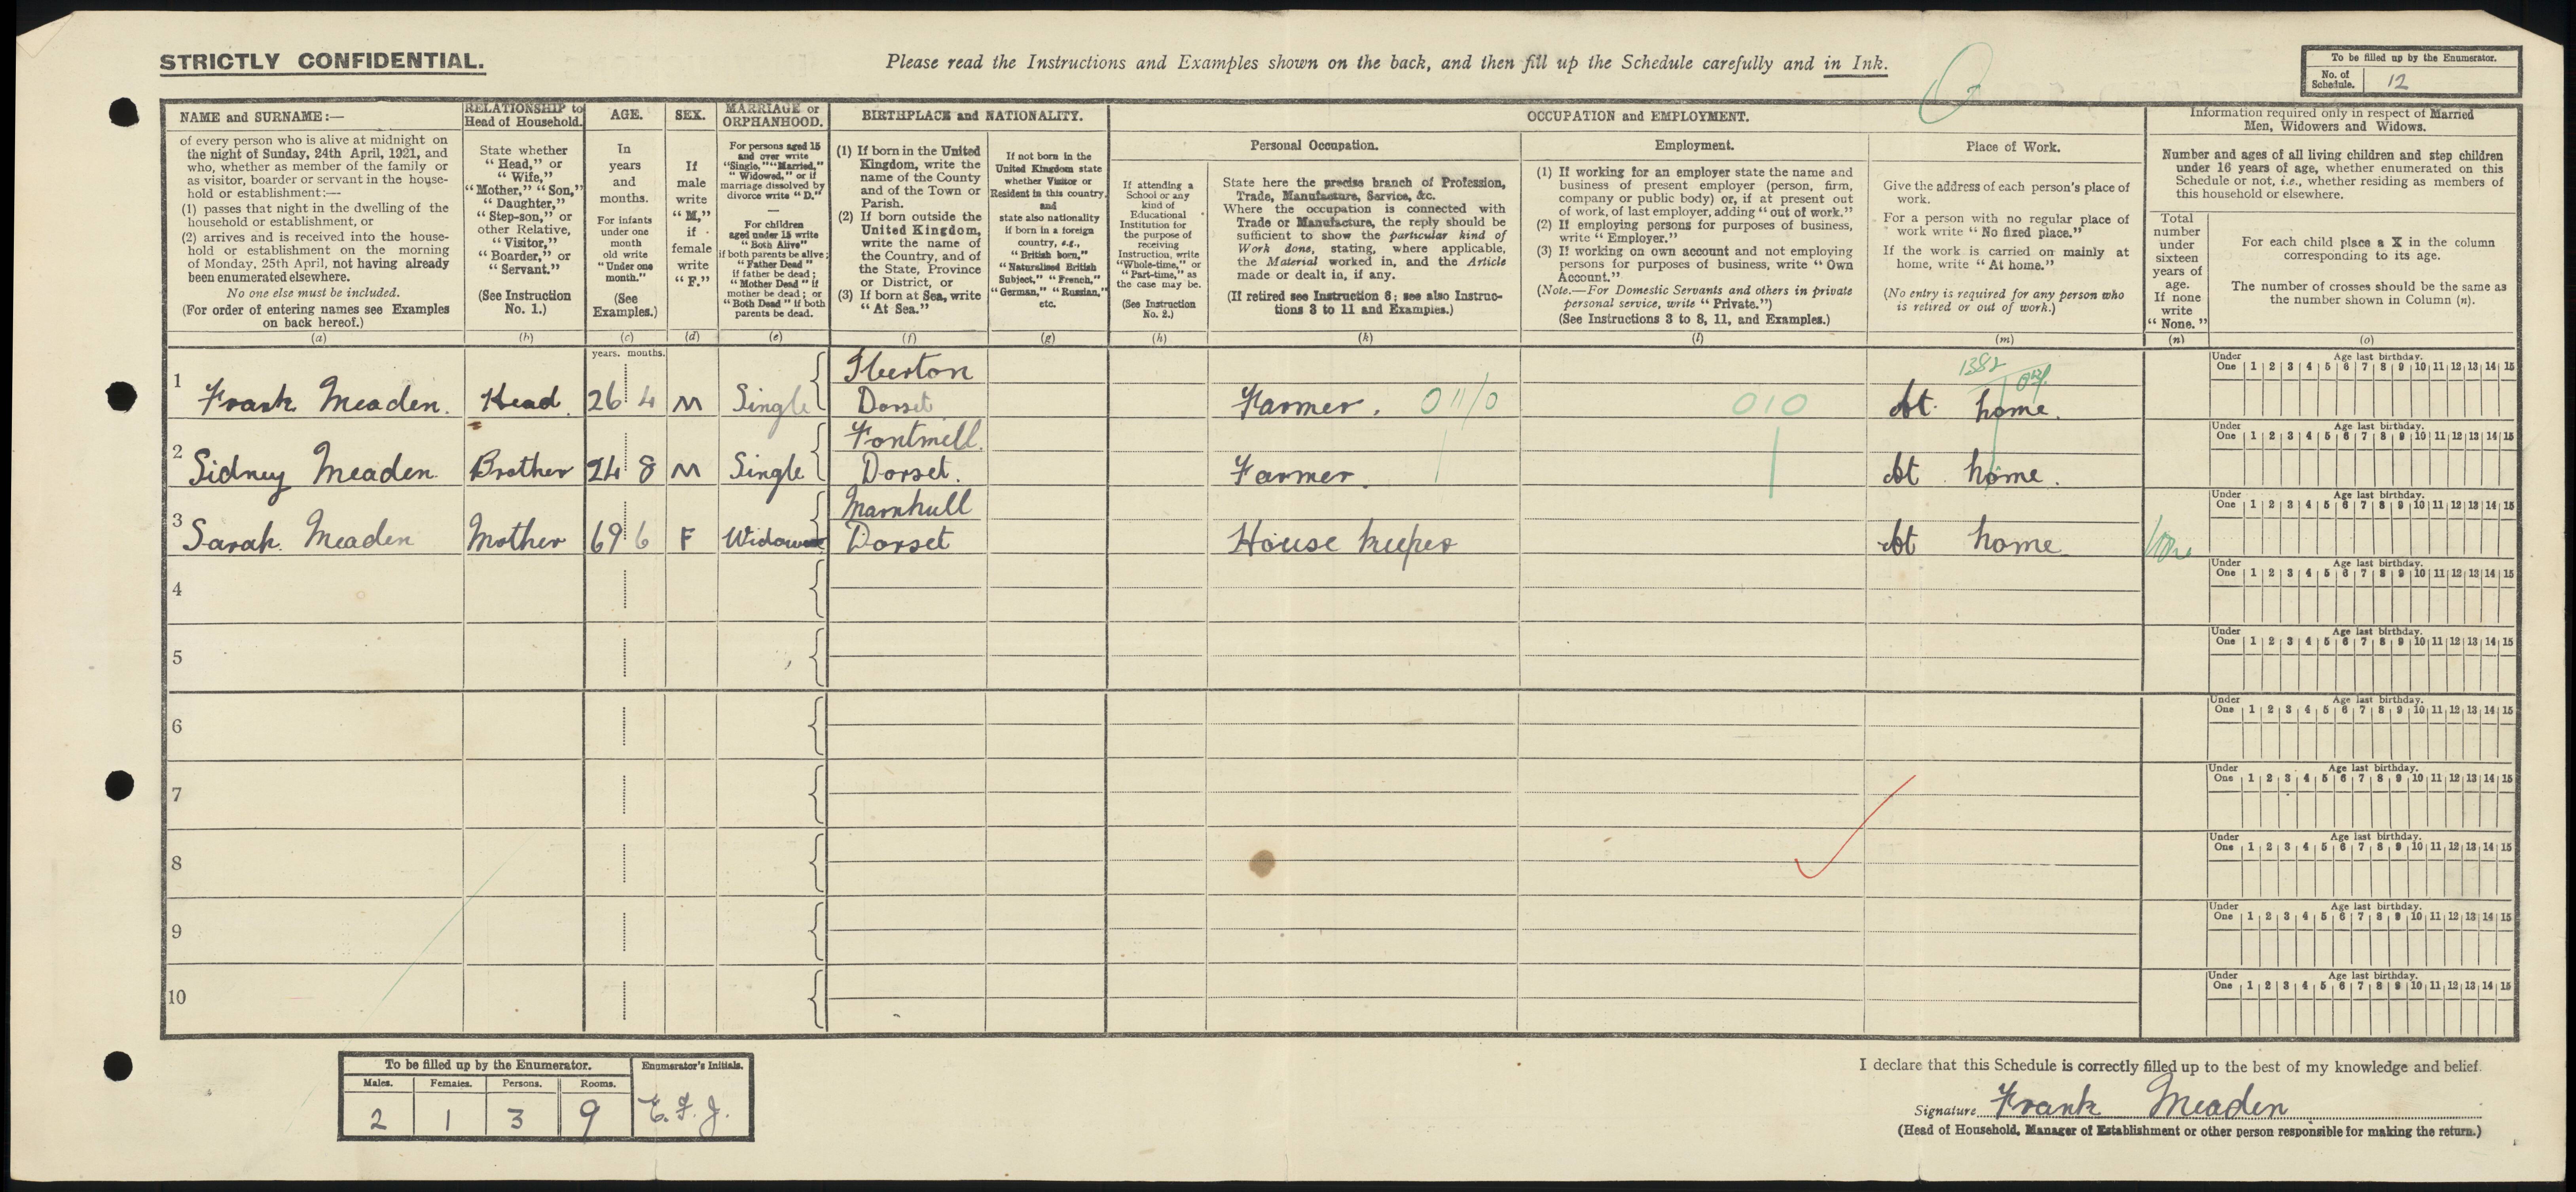 STRICTLY CONFIDENTIAL.
Please read the Instructions and Examples shown on the back, and then fill up the Schedule carefully and in Ink.
To be filled up by the Enumerator.
No. of Schedule. 12
NAME and SURNAME:—
of every person who is alive at midnight on
the night of Sunday, 24th April, 1921, and
who, whether as member of the family or
as visitor, boarder or servant in the house-
hold or establishment:—
(1) passes that night in the dwelling of the
household or establishment, or
(2) arrives and is received into the house-
hold or establishment on the morning
of Monday, 25th April, not having already
been enumerated elsewhere.
No one else must be included.
(For order of entering names see Examples
on back hereof.)
(a)
RELATIONSHIP to
Head of Household.
State whether
"Head," or
"Wife,"
"Mother," "Son,"
"Daughter,"
"Step-son," or
other Relative,
"Visitor,"
"Boarder," or
"Servant."
(See Instruction
No. 1.)
(b)
AGE.
In
years
and
months.
For infants
under one
month
old write
"Under one
month."
(See
Examples.)
(c)
SEX.
If
male
write
"M,"
if
female
write
"F."
(d)
MARRIAGE or
ORPHANHOOD.
For persons aged 15
and over write
"Single," "Married,"
"Widowed," or if
marriage dissolved by
divorce write "D."
—
For children
aged under 15 write
"Both Alive"
if both parents be alive;
"Father Dead"
if father be dead;
"Mother Dead" if
mother be dead; or
"Both Dead" if both
parents be dead.
(e)
BIRTHPLACE and NATIONALITY.
(1) If born in the United
Kingdom, write the
name of the County
and of the Town or
Parish.
(2) If born outside the
United Kingdom,
write the name of
the Country, and of
the State, Province
or District, or
(3) If born at Sea, write
"At Sea."
(f)
If not born in the
United Kingdom state
whether Visitor or
Resident in this country,
and
state also nationality
if born in a foreign
country, e.g.,
"British born,"
"Naturalised British
Subject," "French,"
"German," "Russian,"
etc.
(g)
OCCUPATION and EMPLOYMENT.
If attending a
School or any
kind of
Educational
Institution for
the purpose of
receiving
Instruction, write
"Whole-time," or
"Part-time," as
the case may be.
(See Instruction
No. 2.)
(h)
Personal Occupation.
State here the precise branch of Profession,
Trade, Manufacture, Service, &c.
Where the occupation is connected with
Trade or Manufacture, the reply should be
sufficient to show the particular kind of
Work done, stating, where applicable,
the Material worked in, and the Article
made or dealt in, if any.
(If retired see Instruction 6; see also Instruc-
tions 3 to 11 and Examples.)
(k)
Employment.
(1) If working for an employer state the name and
business of present employer (person, firm,
company or public body) or, if at present out
of work, of last employer, adding "out of work."
(2) If employing persons for purposes of business,
write "Employer."
(3) If working on own account and not employing
persons for purposes of business, write "Own
Account."
(Note.—For Domestic Servants and others in private
personal service, write "Private.")
(See Instructions 3 to 8, 11, and Examples.)
(l)
Place of Work.
Give the address of each person's place of
work.
For a person with no regular place of
work write "No fixed place."
If the work is carried on mainly at
home, write "At home."
(No entry is required for any person who
is retired or out of work.)
(m)
Information required only in respect of Married
Men, Widowers and Widows.
Number and ages of all living children and step children
under 16 years of age, whether enumerated on this
Schedule or not, i.e., whether residing as members of
this household or elsewhere.
Total
number
under
sixteen
years of
age.
If none
write
"None."
(n)
For each child place a X in the column
corresponding to its age.
The number of crosses should be the same as
the number shown in Column (n).
(o)
years. months.
1 Frank Meaden. Head. 26 4 M Single Iberton Dorset Farmer. 011/0 010 At home. 1382
Under One Age last birthday. 1 2 3 4 5 6 7 8 9 10 11 12 13 14 15
2 Sidney Meaden Brother 24 8 M Single Fontmell. Dorset. Farmer. At home.
Under One Age last birthday. 1 2 3 4 5 6 7 8 9 10 11 12 13 14 15
3 Sarah Meaden Mother 69 6 F Widow Marnhull Dorset House keeper At home None
Under One Age last birthday. 1 2 3 4 5 6 7 8 9 10 11 12 13 14 15
4 Under One Age last birthday. 1 2 3 4 5 6 7 8 9 10 11 12 13 14 15
5 Under One Age last birthday. 1 2 3 4 5 6 7 8 9 10 11 12 13 14 15
6 Under One Age last birthday. 1 2 3 4 5 6 7 8 9 10 11 12 13 14 15
7 Under One Age last birthday. 1 2 3 4 5 6 7 8 9 10 11 12 13 14 15
8 Under One Age last birthday. 1 2 3 4 5 6 7 8 9 10 11 12 13 14 15
9 Under One Age last birthday. 1 2 3 4 5 6 7 8 9 10 11 12 13 14 15
10 Under One Age last birthday. 1 2 3 4 5 6 7 8 9 10 11 12 13 14 15
To be filled up by the Enumerator.
Males. Females. Persons. Rooms.
2 1 3 9
Enumerator's Initials.
E.F.J.
I declare that this Schedule is correctly filled up to the best of my knowledge and belief.
Signature Frank Meaden
(Head of Household, Manager of Establishment or other person responsible for making the return.)